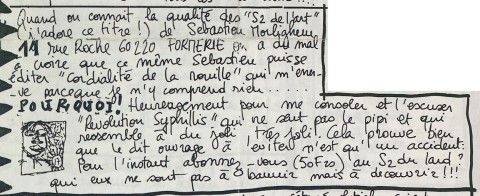 Quand on connait la qualité des "S2 de l'art"
(j'adore ce titre !) de Sebastien Morlighem
11 rue Roche 60220 FORMERIE on a du mal
à croire que ce même Sebastien puisse
éditer "Cordialité de la rouille" qui m'ener-
ve parceque je n'y comprend rien......
POURQUOI! Heureusement pour me consoler et l'excuser
"Revolution Syphilis" qui ne sent pas le pipi et qui
ressemble à du joli, très joli. Cela prouve bien
que le dit ouvrage à éviter n'est qu'un accident.
Pour l'instant abonnez-vous (50F20) au S2 du lard ?
qui eux ne sont pas à bannir mais à decouvrir !!!